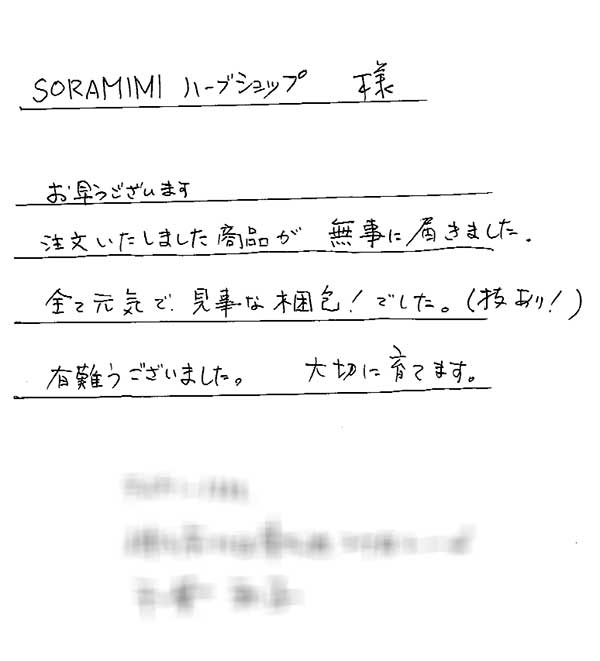 SORAMIMI ハーブショップ 様
お早うございます
注文いたしました商品が 無事に届きました.
全て元気で、見事な梱包!でした。(技あり!)
有難うございました。 大切に育てます。